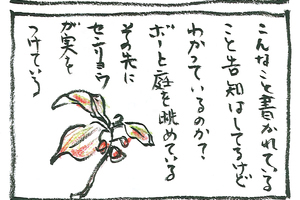 こんなこと書かれている
こと告知はしてるけど
わかっているのか?
ボーと庭を眺めている
その先に
センリョウ
が実を
つけている